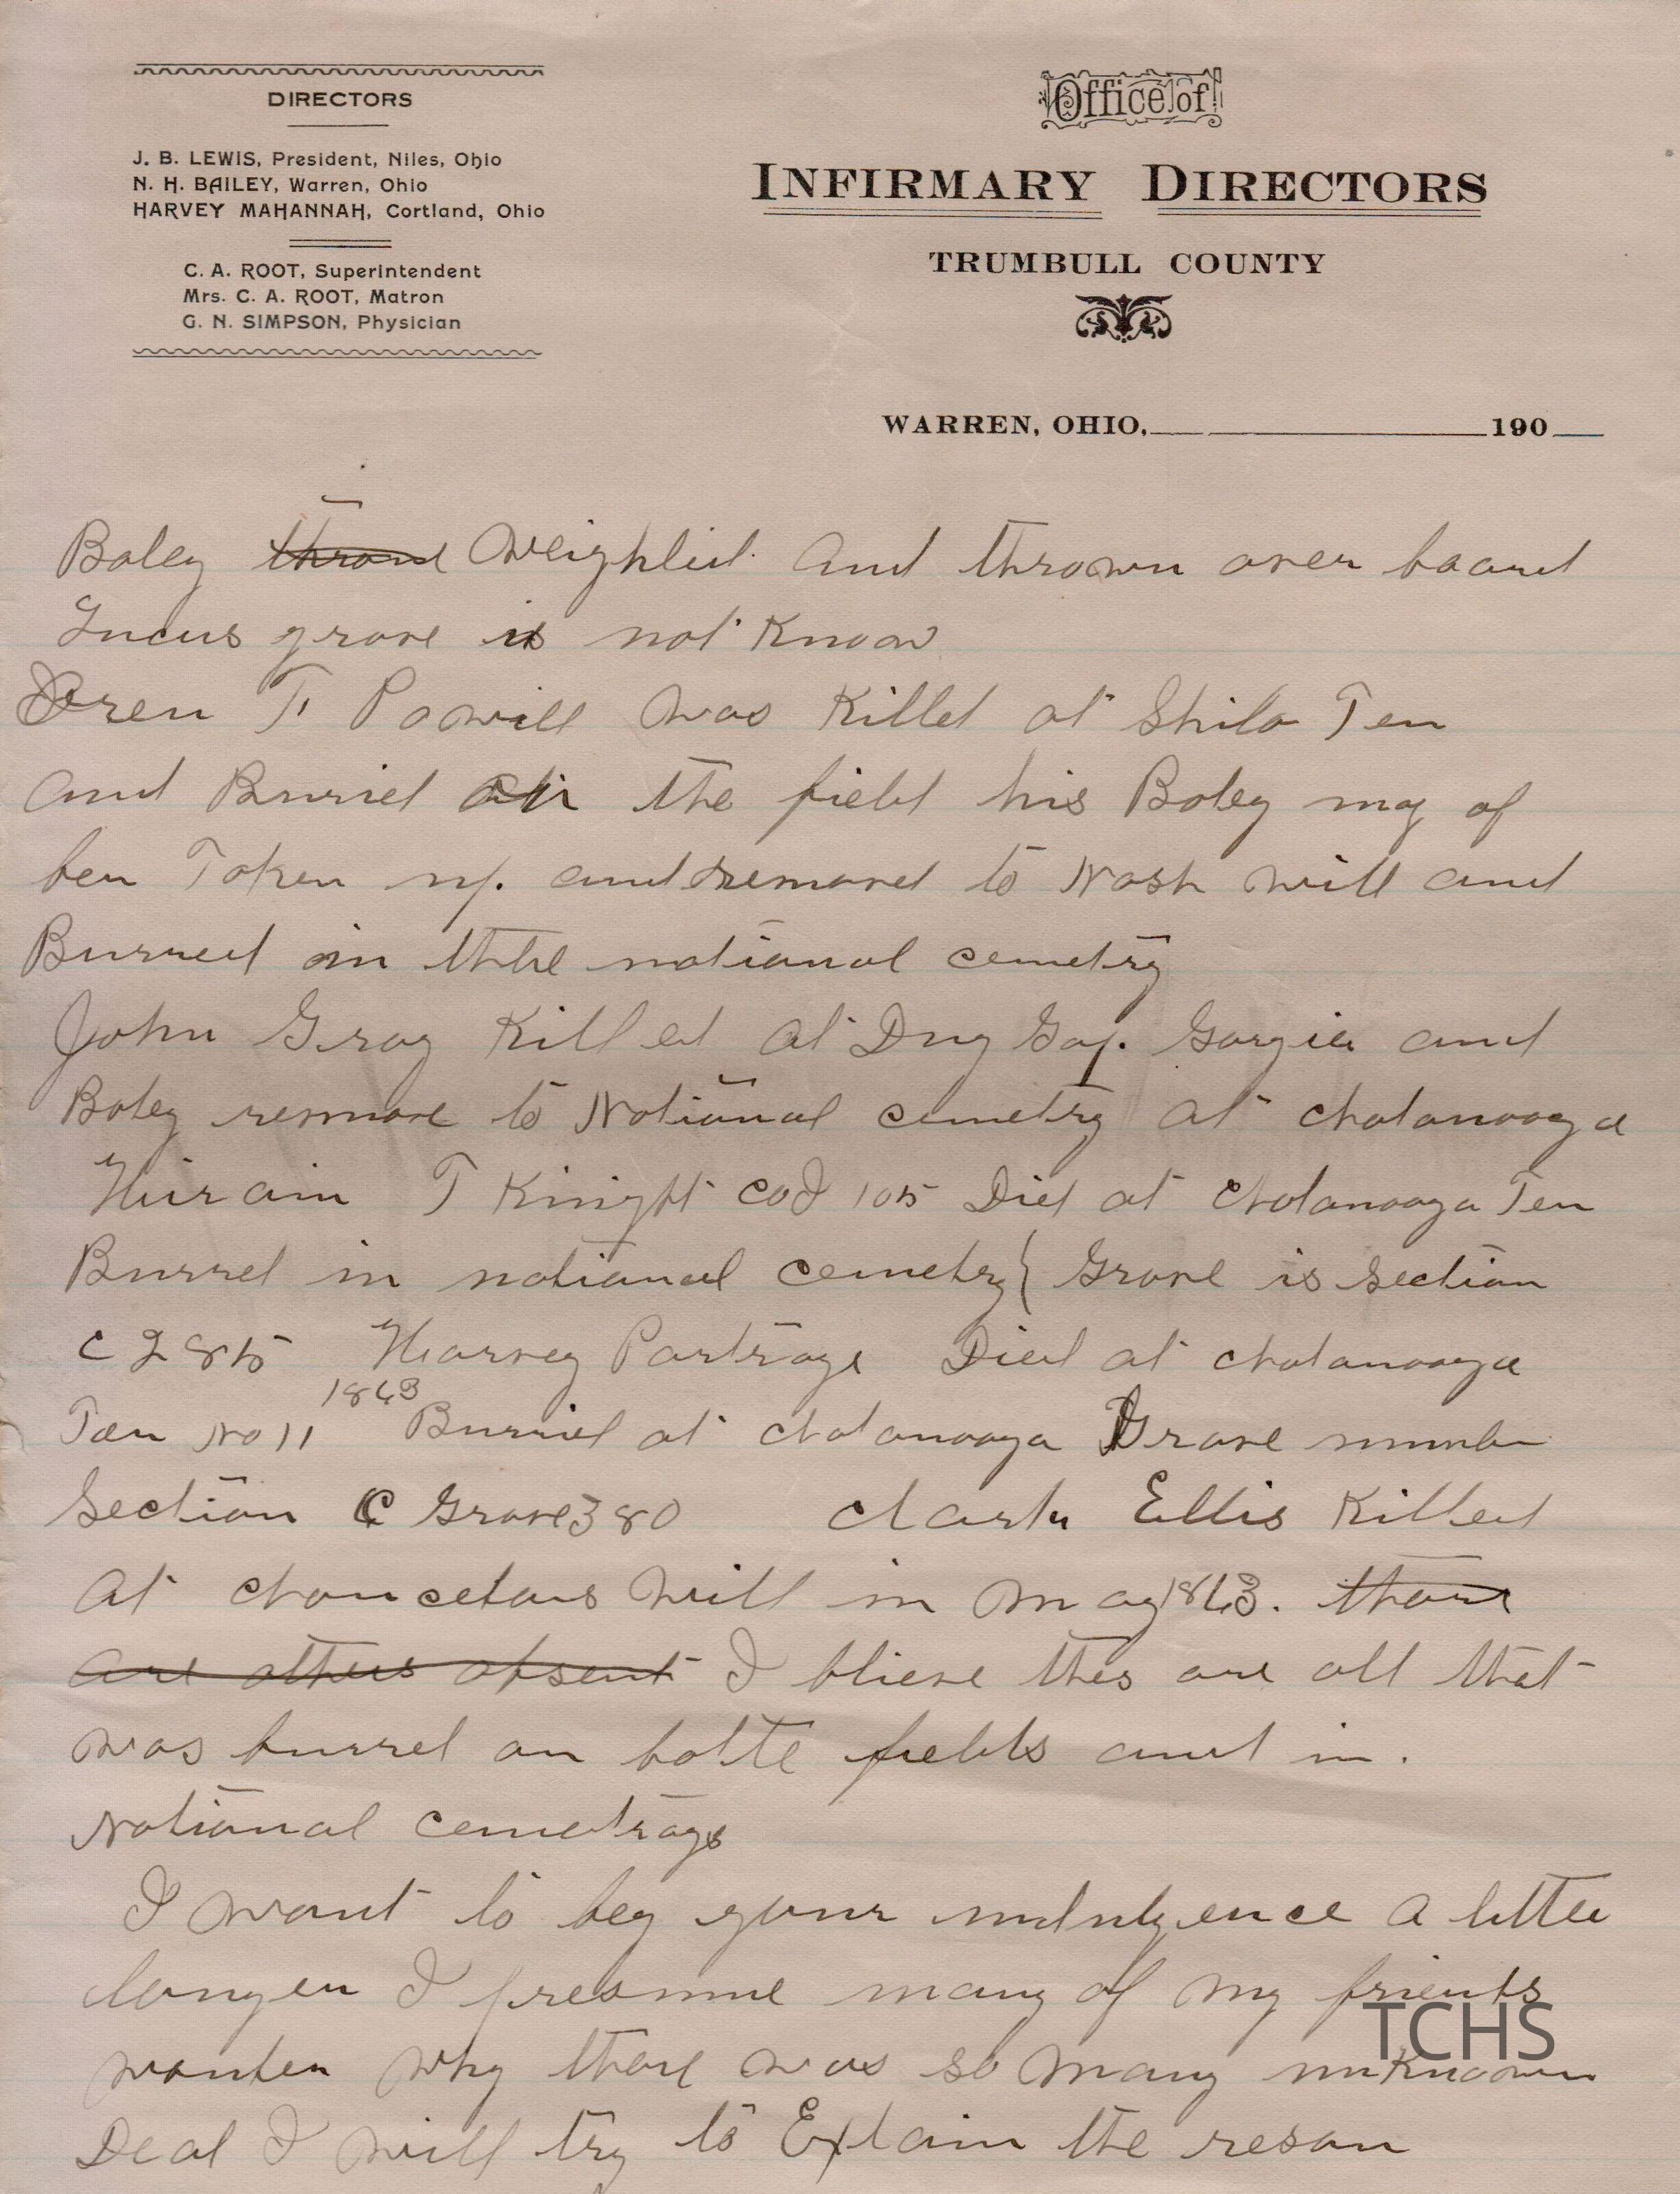 DIRECTORS
J. B. LEWIS, President, Niles, Ohio
N. H. BAILEY, Warren, Ohio
HARVEY MAHANNAH, Cortland, Ohio
C. A. ROOT, Superintendent
Mrs. C. A. ROOT, Matron
G. N. SIMPSON, Physician
Office of
INFIRMARY DIRECTORS
TRUMBULL COUNTY
WARREN, OHIO, 190
Bodey thrond Weighted and thrown over board
grave is not Know
Oren T Powill was Killed at Shilo Ten
and Buried on the field his Bodey may of
ben Taken up. and removed to Nash will and
Burred in the national cemetry
John Gray Killed at Dug Gap. Gorgia and
Bodey remove to National cemetry at chatanooga
Hiram T Knight Co I 105 Died at chatanooga Ten
Burred in national cemetry Grave is Section
C 285 Harvey Partrage Died at chatanooga
Ten No 11 1863 Burried at chatanooga Grave number
Section C Grave 380 Clark Ellis Killed
at chancelors will in May 1863. thare
are others absent I blieve thes are all that
was burred on battle fields and in.
National cemetrays
I want to beg your indulgence a little
longer I presume many of my friends
wonder why thare was so many unknown
Dead I will try to Explain the reson
TCHS